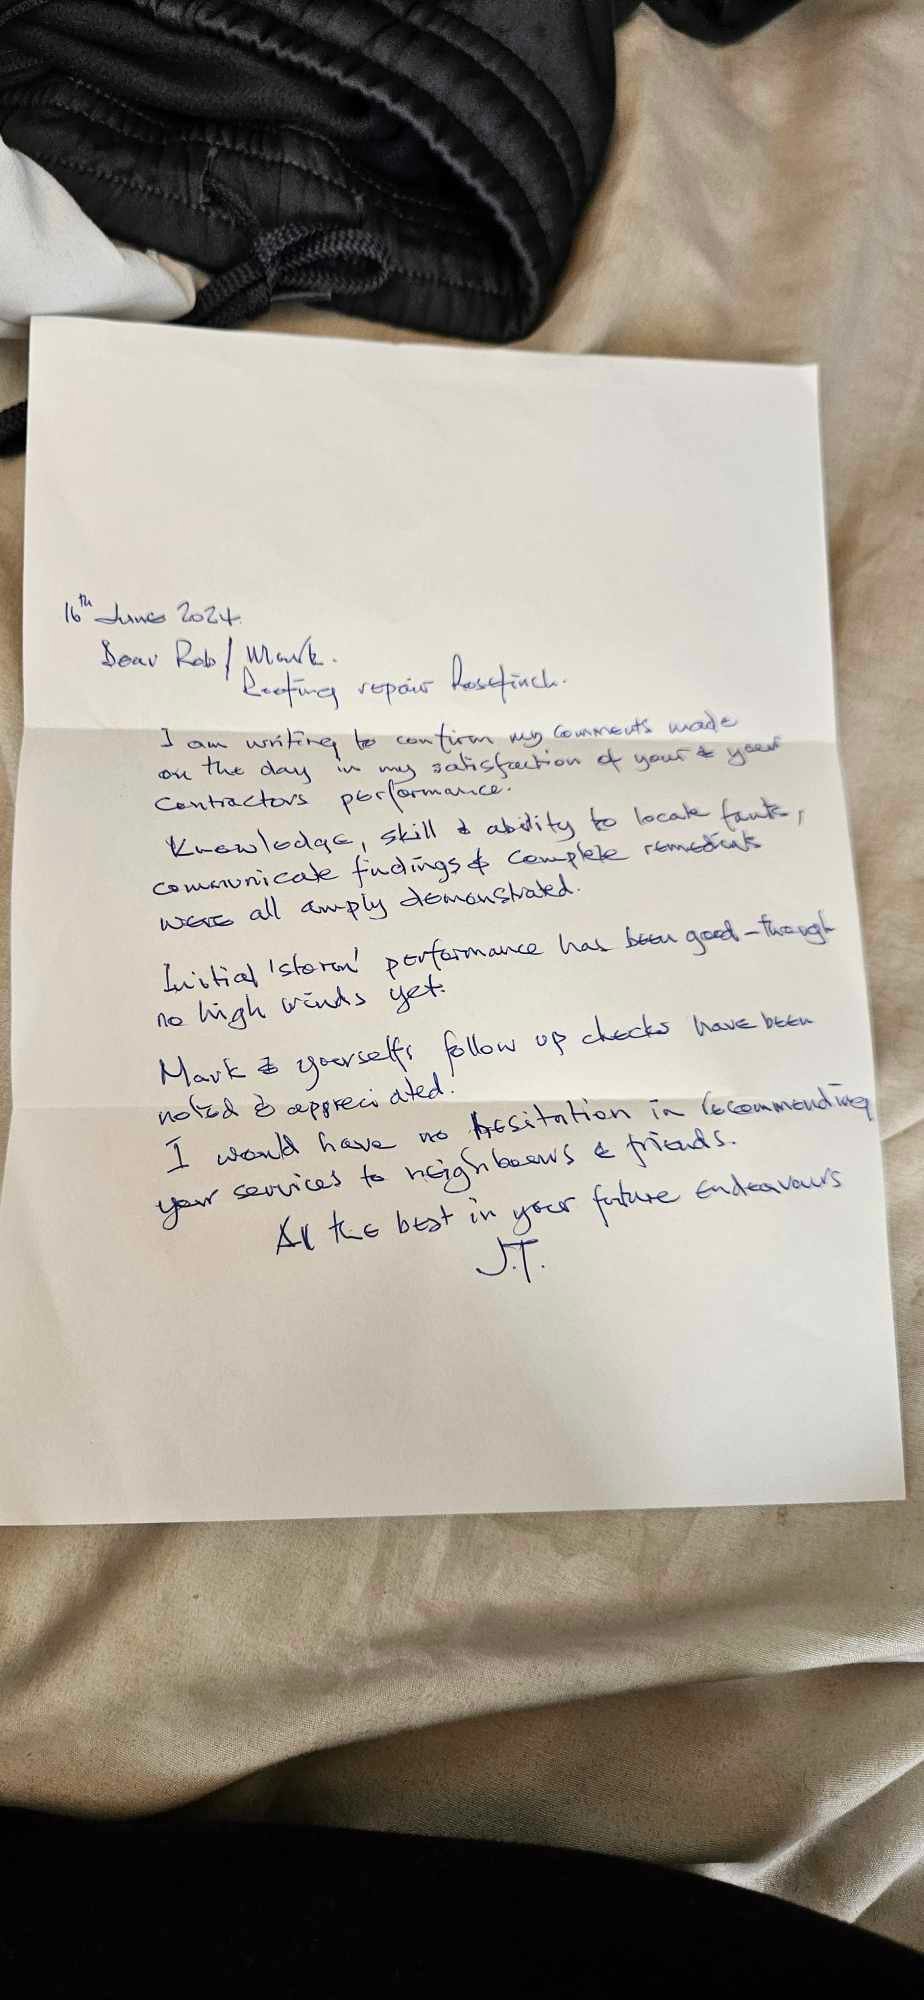 16th June 2024.
Dear Rob / Mark.
Roofing repair Rosefinch.
I am writing to confirm my comments made
on the day in my satisfaction of your & your
contractors performance.
Knowledge, skill & ability to locate faults,
communicate findings & complete remedials
were all amply demonstrated.
Initial 'storm' performance has been good - though
no high winds yet.
Mark & yourselfs follow up checks have been
noted & appreciated.
I would have no hesitation in recommending
your services to neighbours & friends.
All the best in your future endeavours
J.T.